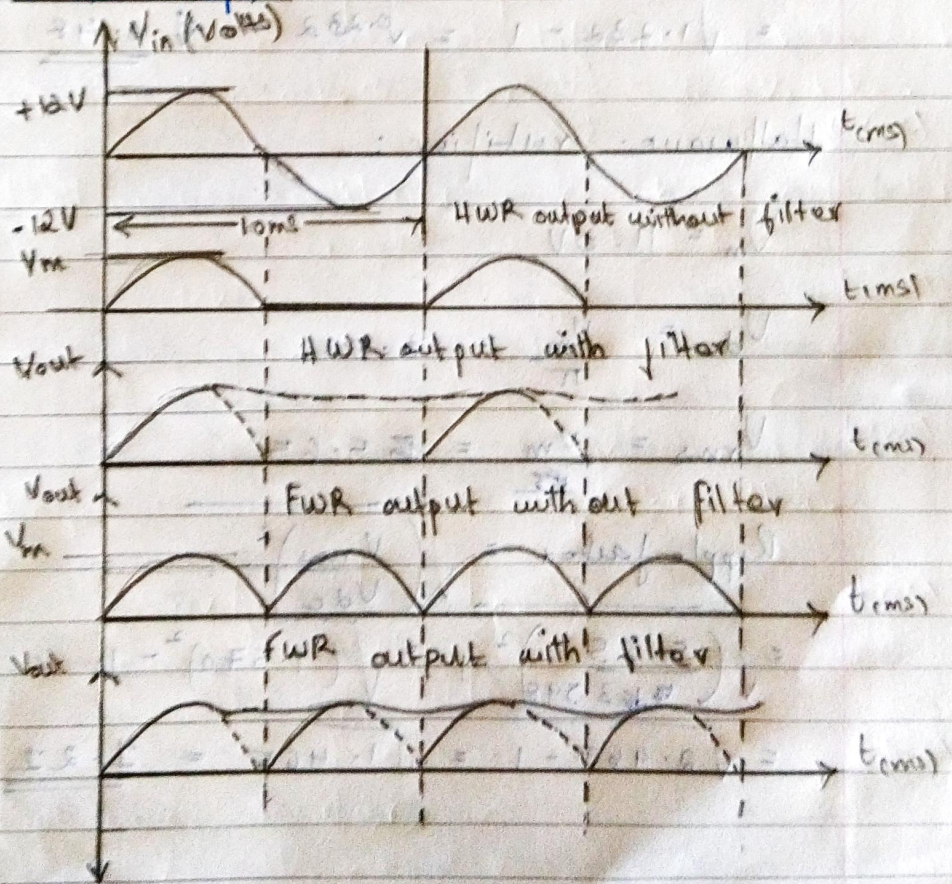 Vin (Volts)
+12V
t(ms)
-12V
10ms
HWR output without filter
Vm
t(ms)
HWR output with filter
Vout
t(ms)
Vout
FWR output without filter
Vm
t(ms)
FWR output with filter
Vout
t(ms)